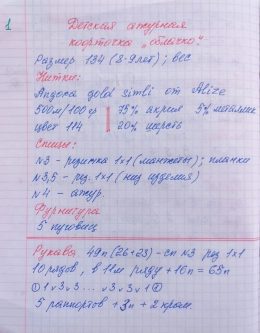 1
Детская ажурная
кофточка "облачко".
Размер 134 (8-9лет); вес
Нитки:
Ангора gold simli от Alize
500м/100гр 75% акрил 5% металлик
цвет 114 20% шерсть
Спицы:
№3 - резинка 1x1 (манжеты); планки
№3,5 - рез. 1x1 (низ изделия)
№4 - ажур.
Фурнитура
5 пуговиц
Рукава 49п (26+23) - сп №3 рез 1x1
10 рядов, в 11м ряду +16п = 65п
① 1v3v3 ... v3v3v1 ②
5 раппортов + 3п + 2 кром.